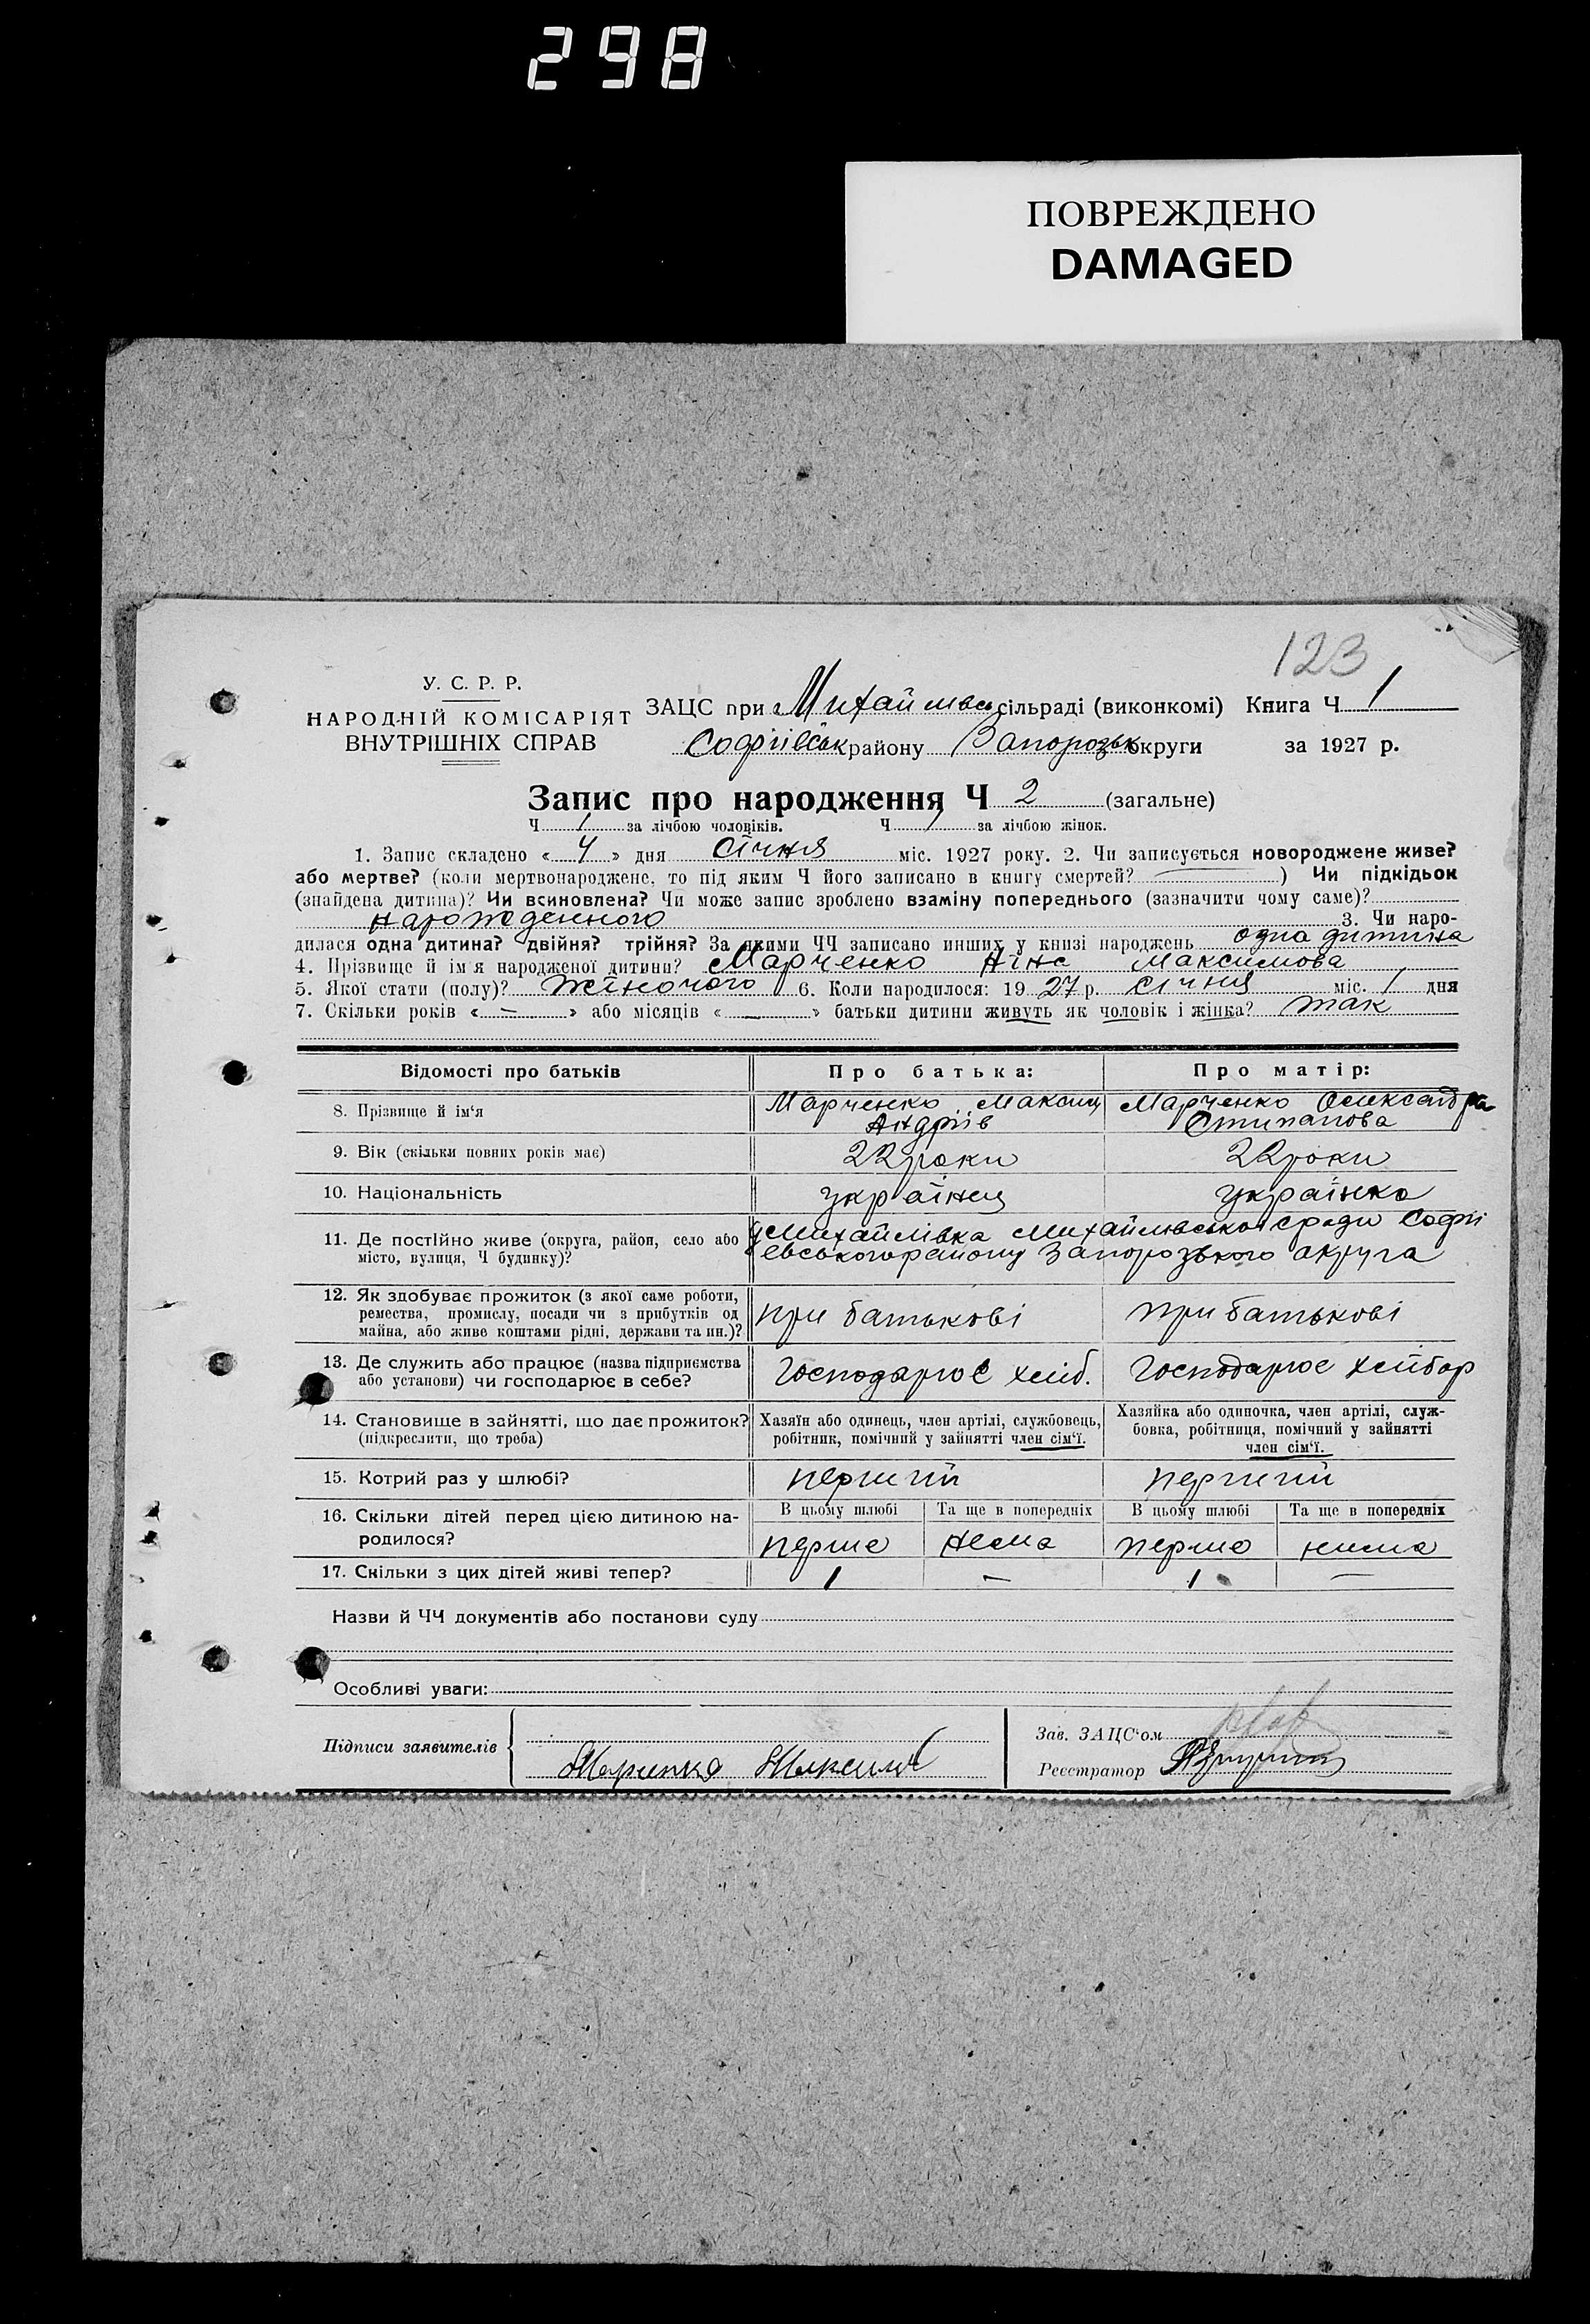 298
ПОВРЕЖДЕНО
DAMAGED
123
У. С. Р. Р.
НАРОДНІЙ КОМІСАРІЯТ
ВНУТРІШНІХ СПРАВ
ЗАЦС при Михайлівсь сільраді (виконкомі) Книга Ч 1
Софіївськ району Запорозьк округи за 1927 р.
Запис про народження Ч 2 (загальне)
Ч 1 за лічбою чоловіків. Ч 1 за лічбою жінок.
1. Запис складено « 4 » дня січня міс. 1927 року. 2. Чи записується новороджене живе?
або мертве? (коли мертвонароджене, то під яким Ч його записано в книгу смертей? —) Чи підкідьок
(знайдена дитина)? Чи всиновлена? Чи може запис зроблено взаміну попереднього (зазначити чому саме)?
нарожденного 3. Чи наро-
дилася одна дитина? двійня? трійня? За якими ЧЧ записано инших у книзі народжень одна дитина
4. Прізвище й ім'я народженої дитини? Марченко Ніна Максимова
5. Якої стати (полу)? жіночого 6. Коли народилося: 19 27 р. січня міс. 1 дня
7. Скільки років « — » або місяців « — » батьки дитини живуть як чоловік і жінка? так
Відомості про батьків Про батька: Про матір:
8. Прізвище й ім'я Марченко Максим Марченко Олександра
Андріїв Стипанова
9. Вік (скільки повних років має) 22 роки 22 роки
10. Національність українец українка
11. Де постійно живе (округа, район, село або Михайлівка Михайлівської сради Софії
місто, вулиця, Ч будинку)? евського району Запорозького округа
12. Як здобуває прожиток (з якої саме роботи,
ремества, промислу, посади чи з прибутків од
майна, або живе коштами рідні, держави та ин.)? при батькові при батькові
13. Де служить або працює (назва підприємства
або установи) чи господарює в себе? Господарює хліб. Господарює хлібор
14. Становище в зайнятті, що дає прожиток?
(підкреслити, що треба)
Хазяїн або одинець, член артілі, службовець,
робітник, помічний у зайнятті член сім'ї.
Хазяйка або одиночка, член артілі, служ-
бовка, робітниця, помічний у зайнятті
член сім'ї.
15. Котрий раз у шлюбі? перший перший
16. Скільки дітей перед цією дитиною на-
родилося?
В цьому шлюбі Та ще в попередніх В цьому шлюбі Та ще в попередніх
перше нема перше нима
17. Скільки з цих дітей живі тепер? 1 — 1 —
Назви й ЧЧ документів або постанови суду
Особливі уваги:
Підписи заявителів
Марченко Максим
Зав. ЗАЦС'ом
Реєстратор